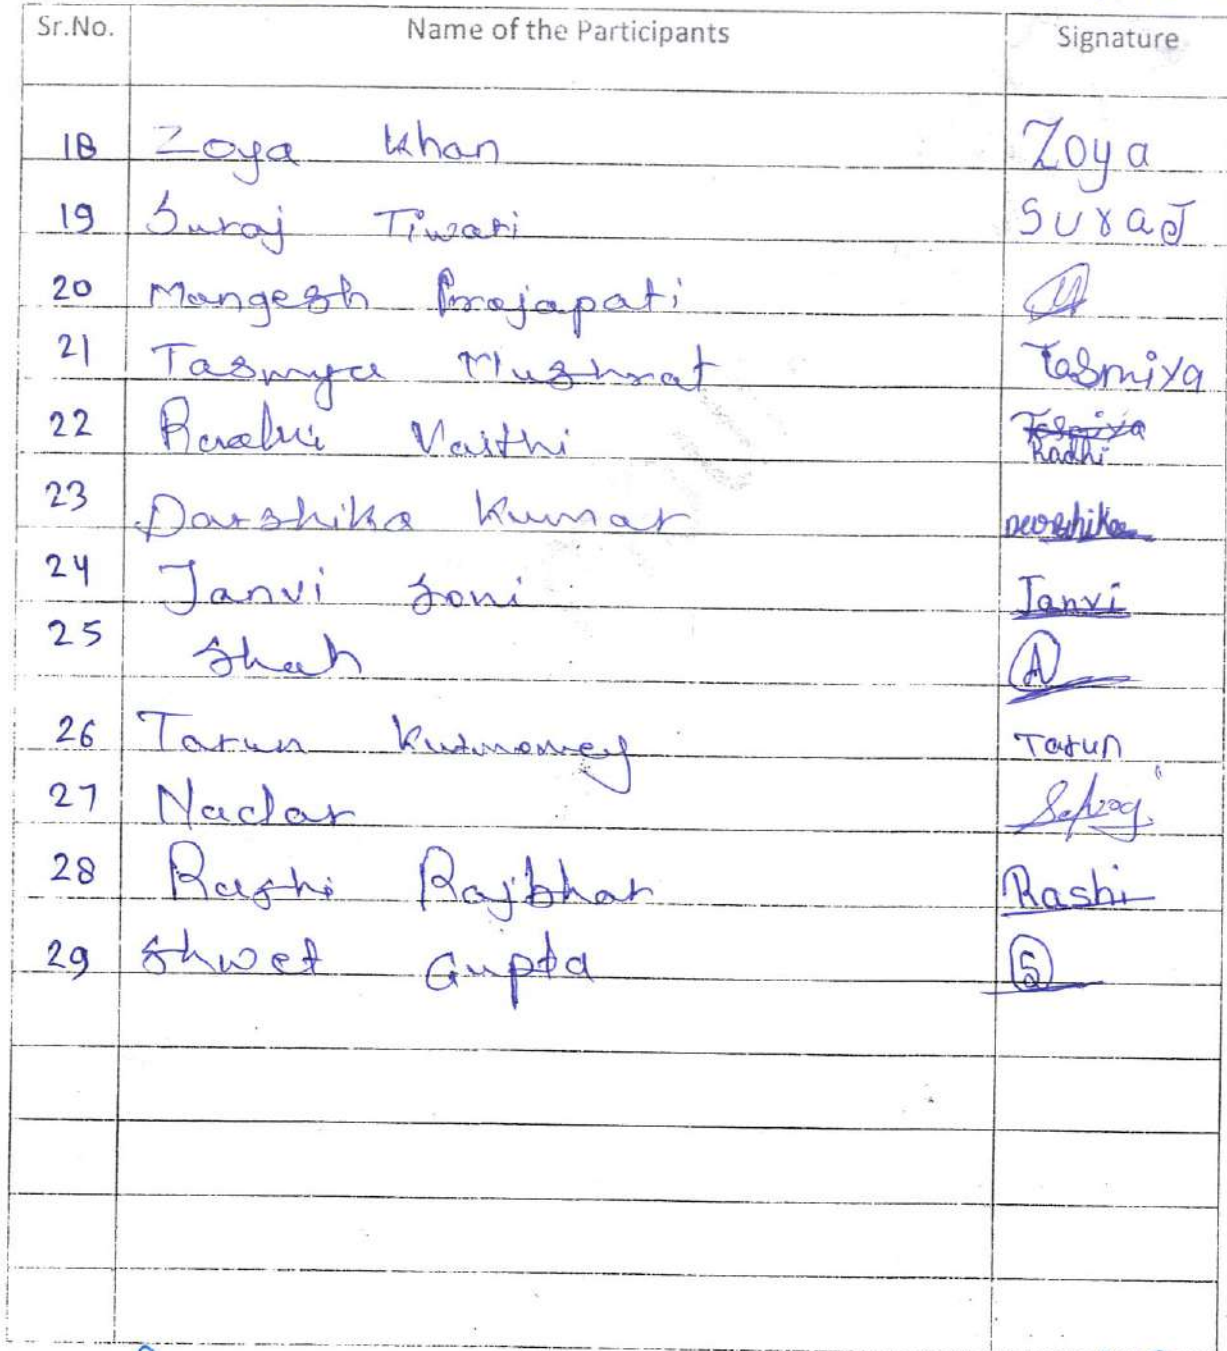 Sr.No. Name of the Participants Signature
18 Zoya Khan Zoya
19 Suraj Tiwari Suraj
20 Mangesh Prajapati
21 Tasmya Mushrat Tasmiya
22 Radhi Vaithi Tasmiya Radhi
23 Darshika Kumar Darshika
24 Janvi Soni Janvi
25 Shah A
26 Tarun Tarun
27 Nadar
28 Rashi Rajbhar Rashi
29 Shwet Gupta S